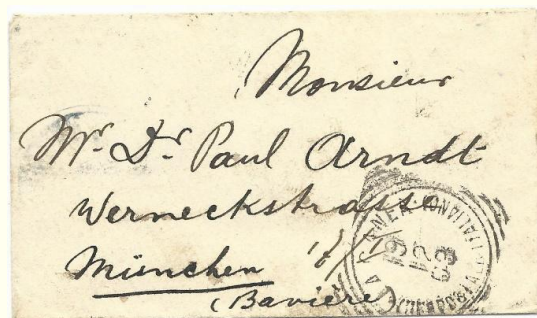 Monsieur
Mr. Dr. Paul Arndt
Werneckstrasse
München
(Bavière)